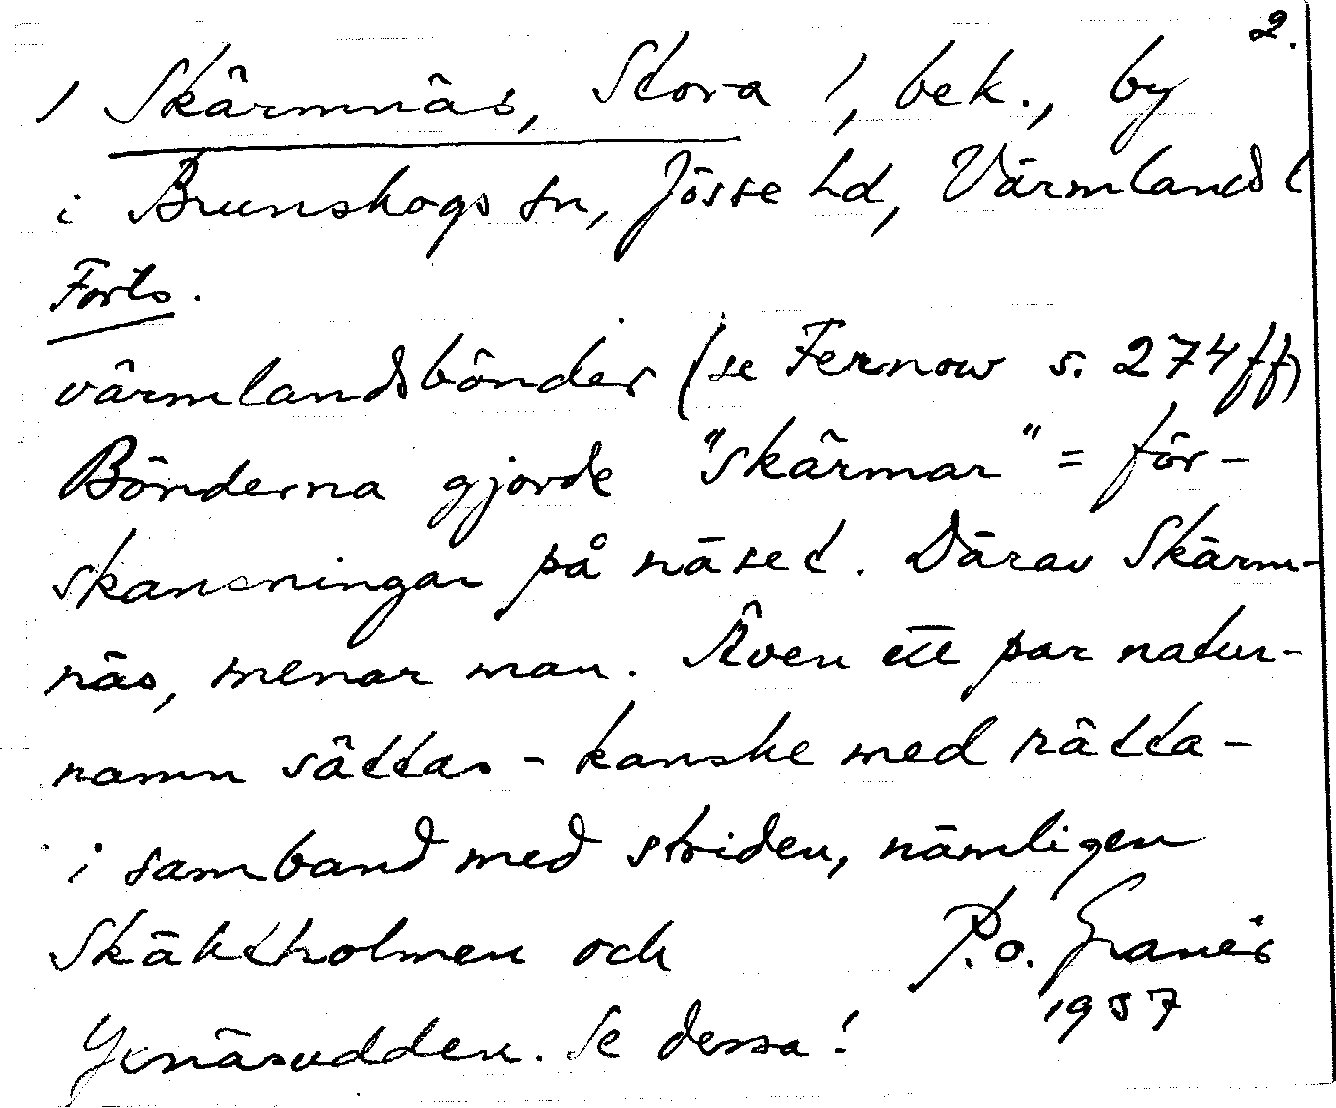 2.
/ Skärmnäs, Stora /, bek., by
i Brunskogs sn, Jösse hd, Värmlands l
Forts.
värmlandsbönder (se Fernow s. 274 ff)
Bönderna gjorde "skärmar" = för-
skansningar på näset. Därav Skärm-
näs, menar man. Även ett par natur-
namn sättas - kanske med rätta -
i samband med striden, nämligen
Skäktholmen och
P.o. Granér
1937
Yxnäsudden. Se dessa!